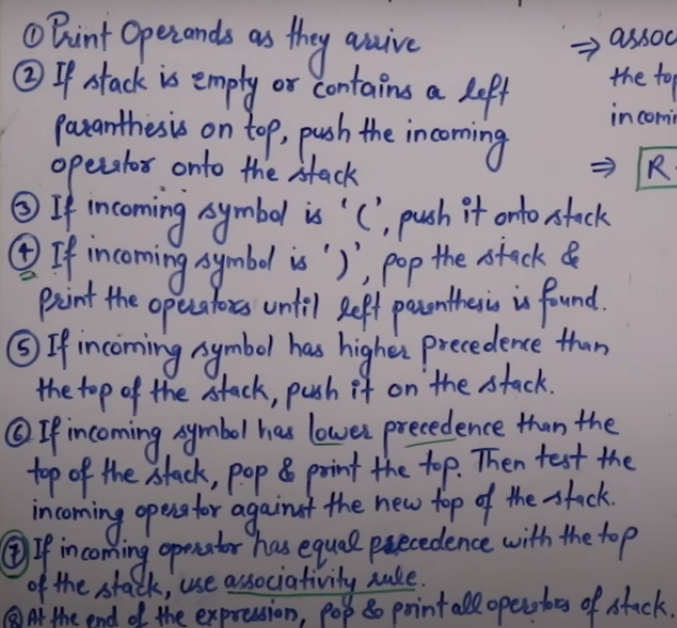 ① Print Operands as they arrive
② If stack is empty or contains a left
paranthesis on top, push the incoming
operator onto the stack
③ If incoming symbol is '(', push it onto stack
④ If incoming symbol is ')', pop the stack &
print the operators until left parenthesis is found.
⑤ If incoming symbol has higher precedence than
the top of the stack, push it on the stack.
⑥ If incoming symbol has lower precedence than the
top of the stack, pop & print the top. Then test the
incoming operator against the new top of the stack.
⑦ If incoming operator has equal precedence with the top
of the stack, use associativity rule.
⑧ At the end of the expression, pop & print all operators of stack.
⇒ assoc
the top
incomi
⇒ R